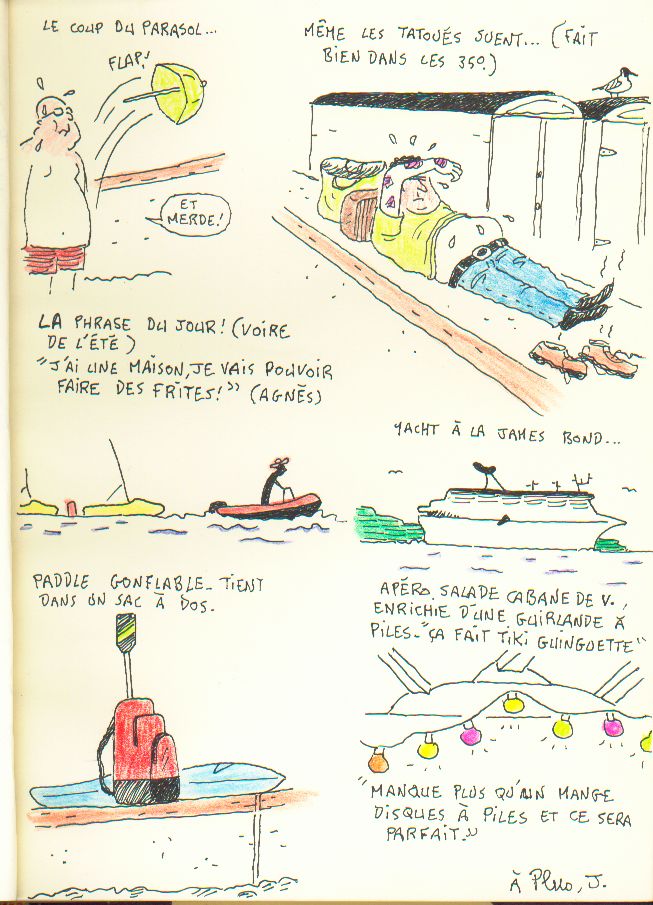 LE COUP DU PARASOL...
FLAP!
ET
MERDE!
MÊME LES TATOUÉS SUENT... (FAIT
BIEN DANS LES 35º.)
LA PHRASE DU JOUR! (VOIRE
DE L'ÉTÉ)
"J'AI UNE MAISON, JE VAIS POUVOIR
FAIRE DES FRITES!" (AGNÈS)
YACHT À LA JAMES BOND...
PADDLE GONFLABLE_ TIENT
DANS UN SAC À DOS.
APÉRO, SALADE CABANE DE V.,
ENRICHIE D'UNE GUIRLANDE À
PILES_ "ÇA FAIT TIKI GUINGUETTE"
"MANQUE PLUS QU'UN MANGE
DISQUES À PILES ET CE SERA
PARFAIT."
À Pluo, J.